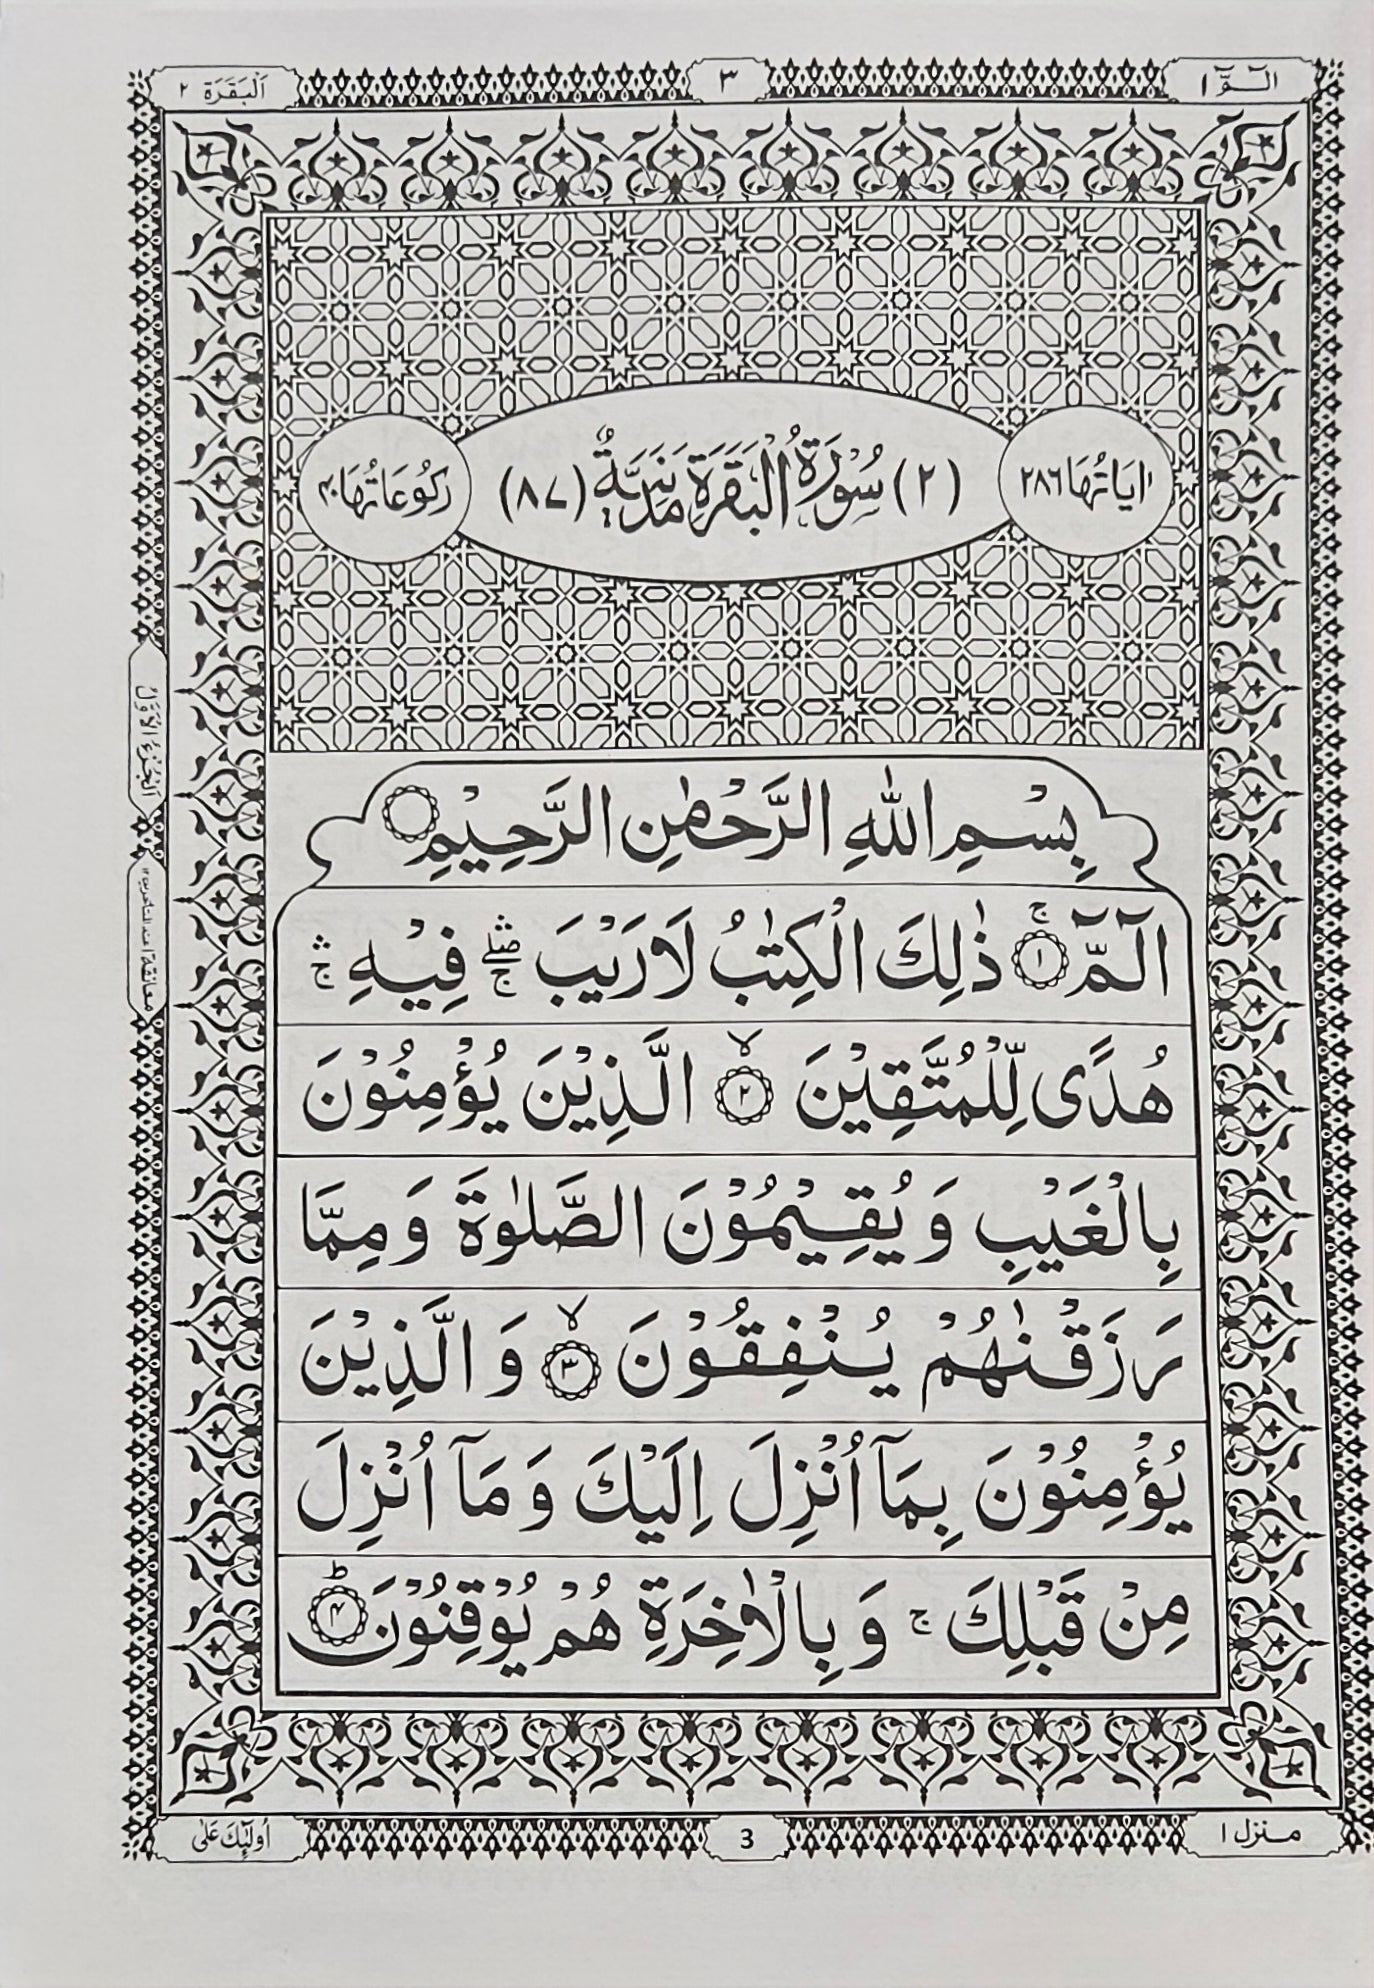 الٓـمّٓ ١
٣
اَلْبَقَرَة ٢
اٰيَاتُهَا ٢٨٦
(٢) سُوْرَةُ الْبَقَرَةِ مَدَنِيَّةٌ (٨٧)
رُكُوْعَاتُهَا ۴۰
بِسْمِ اللّٰهِ الرَّحْمٰنِ الرَّحِيْمِ
الٓمّٓ ۚ﴿١﴾ ذٰلِكَ الْكِتٰبُ لَا رَيْبَ ۛۖۚ فِيْهِ ۛۚ
هُدًى لِّلْمُتَّقِيْنَ ۙ﴿٢﴾ الَّذِيْنَ يُؤْمِنُوْنَ
بِالْغَيْبِ وَ يُقِيْمُوْنَ الصَّلٰوةَ وَ مِمَّا
رَزَقْنٰهُمْ يُنْفِقُوْنَ ۙ﴿٣﴾ وَ الَّذِيْنَ
يُؤْمِنُوْنَ بِمَآ اُنْزِلَ اِلَيْكَ وَ مَآ اُنْزِلَ
مِنْ قَبْلِكَ ۚ وَ بِالْاٰخِرَةِ هُمْ يُوْقِنُوْنَ ؕ﴿۴﴾
اَلْجُزْءُ الْاَوَّلُ
معانقة ١ عند المتاخرين ١٢
منزل ١
3
اُولٰٓئِكَ عَلٰى